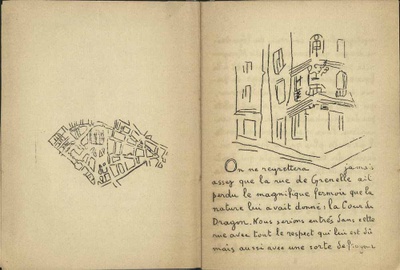 On ne regrettera jamais
assez que la rue de Grenelle ait
perdu le magnifique fermoir que la
nature lui avait donné : la Cour du
Dragon. Nous serions entrés dans cette
rue avec tout le respect qui lui est dû
mais aussi avec une sorte de frayeur